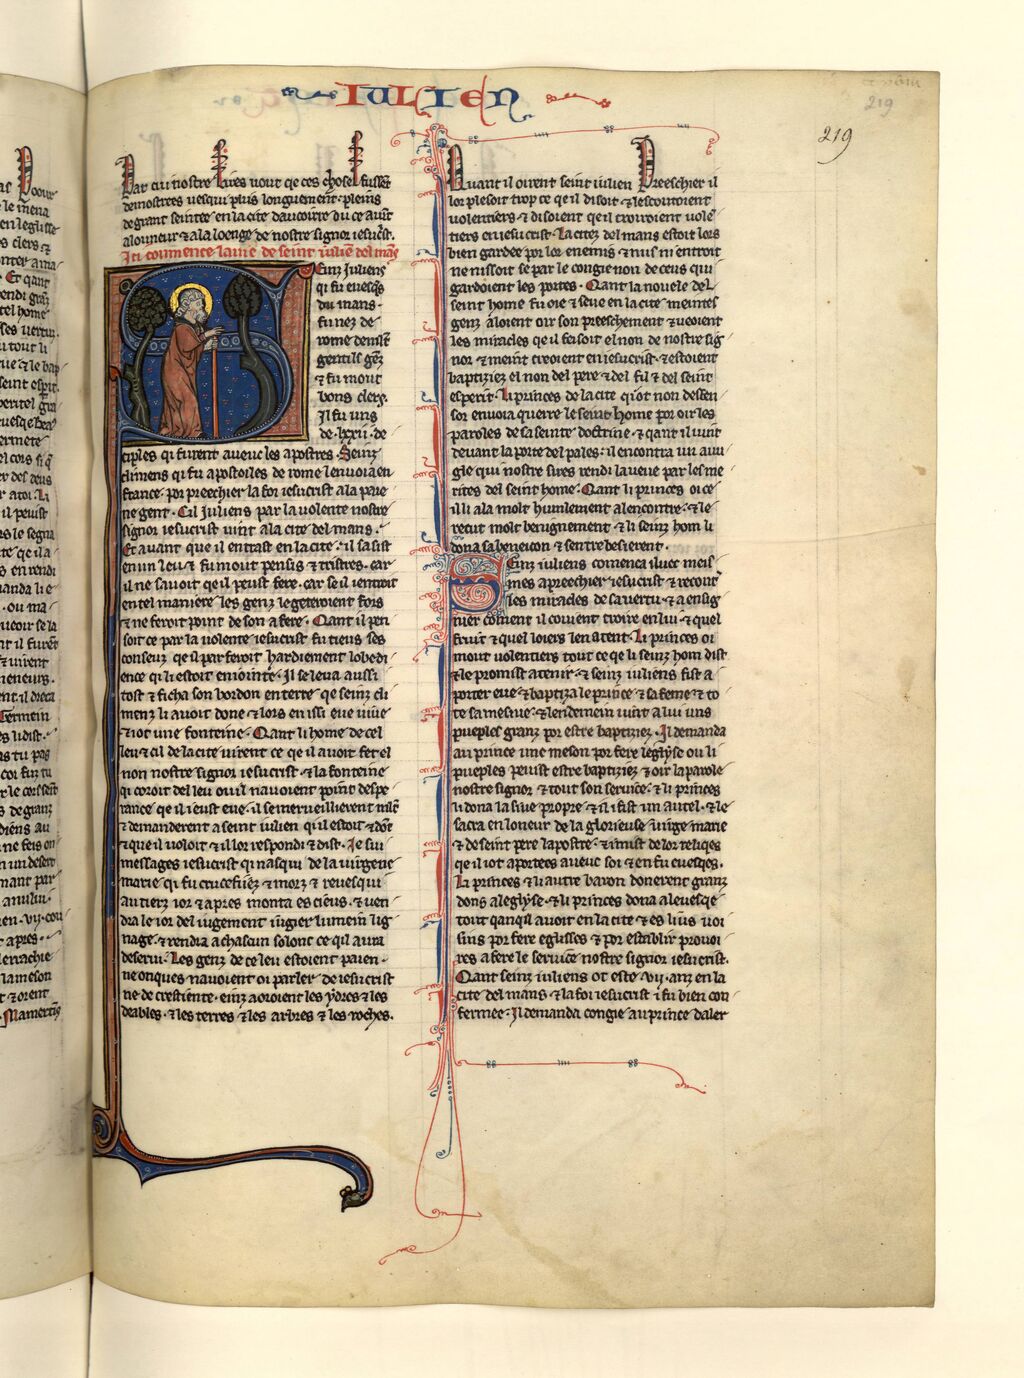 IULIEN
219
219
Par cui nostre sires vout qe ces choses fussẽt
demostrees iesqui plus longuement · pleins
de grant seintee en la cite daucoirre du ce aust
a lonneur ⁊ a la loenge de nostre signor iesucrist.
Ici commence la vie de seint iulien del mans
Seinz Juliens
qi fu evesq̃s
du mans ·
fu nez de
rome de mlt̃
gentils gẽz
⁊ fu mout
bons clers.
Il fu uns
de · lxxii · de
ciples qi furent avenc les apostres · Seinz
climens qi fu apostoiles de rome lenvoia en
france · por preechier la foi iesucrist a la paie
ne gent · Cil Juliens par la volente nostre
signor iesucrist vint a la cite del mans ·
Et avant que il entrast en la cite · il sasist
en un leu ⁊ fu mout pensis ⁊ tristres · car
il ne savoit qe il peust fere · car se il ientroit
en tel maniere les genz le geteroient fors
⁊ ne feroit point de son afere · Qant il pen
soit ce par la volente iesucrist fu tiens ses
conseuz qe il par feroit hardiement lobedi
ence qi li estoit eniointe · Il se leva aussi
tost ⁊ ficha son bordon en terre qe seinz cli
menz li avoit done ⁊ lors en issi eue vive
⁊ iot une fonteine · Qant li home de cel
leu ⁊ cil de la cite virent ce qe il avoit fet el
non nostre signor iesucrist · ⁊ la fonteine
qi coroit del leu ou il navoient point despe
rance qe il i eust eue · il semerveillierent mlt̃
⁊ demanderent a seint iulien qi il estoit ⁊ dõt
⁊ que il voloit ⁊ il lor respondi ⁊ dist · Je sui
messages iesucrist qi nasqui de la virgene
marie qi fu crucefiiez ⁊ morz ⁊ revesqui
au tierz ior ⁊ apres monta es cieus · ⁊ ven
dra le ior del iugement iugier lumein lig
nage · ⁊ rendra a chascun solonc ce qil aura
deservi · Les genz de ce leu estoient paien ·
ne onques navoient oi parler de iesucrist
ne de crestiente · einz aoroient les ydres ⁊ les
deables · ⁊ les terres ⁊ les arbres ⁊ les roches.
Quant il oirent seint iulien Preeschier il
lor plesoit trop ce qe il disoit · ⁊ lescoutoient
volentiers ⁊ disoient qe il croiroient volẽ
tiers en iesucrist · La citez del mans estoit lors
bien gardee por lor enemis · ⁊ nus ni entroit
ne nissoit se par le congie non de ceus qui
gardoient les portes · Qant la novele del
seint home fu oie ⁊ seue en la cite · meintes
genz aloient oir son preeschement ⁊ veoient
les miracles qe il feisoit el non de nostre sig
nor ⁊ meint creoient en iesucrist · ⁊ estoient
baptiziez el non del pere ⁊ del fil ⁊ del seint
esperit · Li princes de la cite qi ot non deffen
sor envoia querre le seint home por oir les
paroles de sa seinte doctrine · ⁊ qant il vint
devant la porte del pales · il encontra un avu
gle qui nostre sires rendi la veue par les me
rites del seint home · Qant li princes oi ce
il li ala molt humlement a lencontre · ⁊ le
recut molt benignement · ⁊ li seinz hom li
dona sa beneicon ⁊ sentrebesierent ·
Seinz iuliens comenca iluec meis
mes a preechier iesucrist ⁊ recont̃
les miracles de sa vertu · ⁊ a ensig
nier coment il covient croire en lui · ⁊ quel
fruit ⁊ quel loiers len atent · Li princes oi
mout volentiers tout ce qe li seinz hom dist
⁊ le promist a tenir · ⁊ seinz iuliens fist a
porter eue ⁊ baptiza le prince ⁊ sa feme ⁊ to
te sa mesnie · ⁊ lendemein vint a lui uns
pueples granz por estre baptiziez · Il demanda
au prince une meson por fere leglyse ou li
pueples peust estre baptiziez ⁊ oir la parole
nostre signor ⁊ tout son service · ⁊ li princes
li dona la sive propre ⁊ il i fist un autel · ⁊ le
sacra en loneur de la glorieuse virge marie
⁊ de seint pere lapostre · ⁊ i mist de lor reliqes
qe il iot aportees avenc soi ⁊ en fu evesqes.
Li princes ⁊ li autre baron donerent granz
dons a leglyse · ⁊ li princes dona a levesqe
tout qanqil avoit en la cite ⁊ es lius voi
sins por fere eglisses ⁊ por establir provoi
res a fere le service nostre signor iesucrist.
Qant seinz iuliens ot este · vij · anz en la
cite del mans ⁊ la foi iesucrist i fu bien con
fermee · Il demanda congie au prince daler